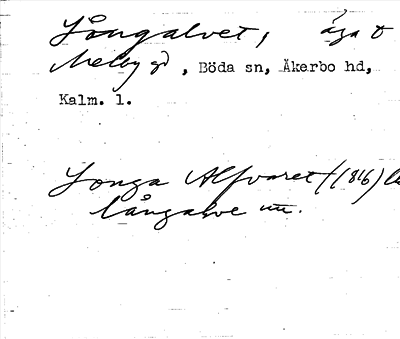 Långalvet, äga t
Melby gd, Böda sn, Åkerbo hd,
Kalm. l.
Longa Alfvaret (1816)
långalve